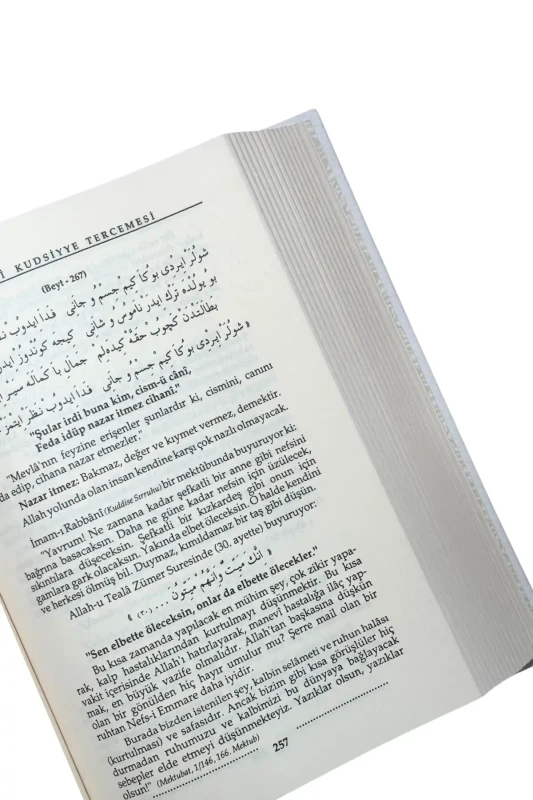 İ KUDSİYYE TERCEMESİ
(Beyt - 267)
شولر ايردى بوكا كيم جسم و جانى فدا ايدوب نظر
بو يولده ترك ايدر ناموس و شانى كيجه كوندوز
بطالتدن كچوب حقه كيده لم جمال با كماله سير
« شولر ايردى بوكا كيم جسم و جانى فدا ايدوب نظر ايتمز
"Şular irdi buna kim, cism-ü câni,
Feda idüp nazar itmez cihanî."
"Mevlâ'nın feyzine erişenler şunlardır ki, cismini, canını
da edip, cihana nazar etmezler."
Nazar itmez: Bakmaz, değer ve kıymet vermez, demektir.
Allah yolunda olan insan kendine karşı çok nazlı olmayacak.
İmam-ı Rabbânî (Kuddise Serruhu) bir mektûbunda buyuruyor ki:
"Yavrum! Ne zamana kadar şefkatli bir anne gibi nefsini
bağrına basacaksın. Daha ne güne kadar nefsin için üzülecek,
sıkıntılara düşeceksin. Şefkatli bir kızkardeş gibi onun için
gamlara gark olacaksın. Yakında elbet öleceksin. O halde kendini
ve herkesi ölmüş bil. Duymaz, kımıldamaz bir taş gibi düşün.
Allah-u Tealâ Zümer Suresinde (30. ayette) buyuruyor:
« اِنَّكَ مَيِّتٌ وَاِنَّهُمْ مَيِّتُونَ ..... (٣٠) »
"Sen elbette öleceksin, onlar da elbette ölecekler."
Bu kısa zamanda yapılacak en mühim şey, çok zikir yapa-
rak, kalp hastalıklarından kurtulmayı düşünmektir. Bu kısa
vakit içerisinde Allah'ı hatırlayarak, manevî hastalığa ilâç yap-
mak, en büyük vazife olmalıdır. Allah'tan başkasına düşkün
olan bir gönülden hiç hayır umulur mu? Şerre mail olan bir
ruhtan Nefs-i Emmare daha iyidir.
Burada bizden istenilen şey, kalbin selâmeti ve ruhun halâsı
(kurtulması) ve safasıdır. Ancak bizim gibi kısa görüşlüler hiç
durmadan ruhumuzu ve kalbimizi bu dünyaya bağlayacak
sebepler elde etmeyi düşünmekteyiz. Yazıklar olsun, yazıklar
olsun!" (Mektubat, 1/146, 166. Mektub)
257